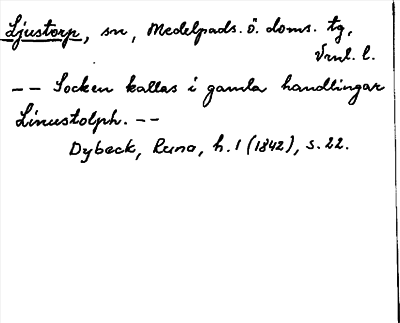 Ljustorp, sn, Medelpads. ö. doms. tg,
Vrnl. l.
-- Socken kallas i gamla handlingar
Linustolph. --
Dybeck, Runa, h. 1 (1842), s. 22.